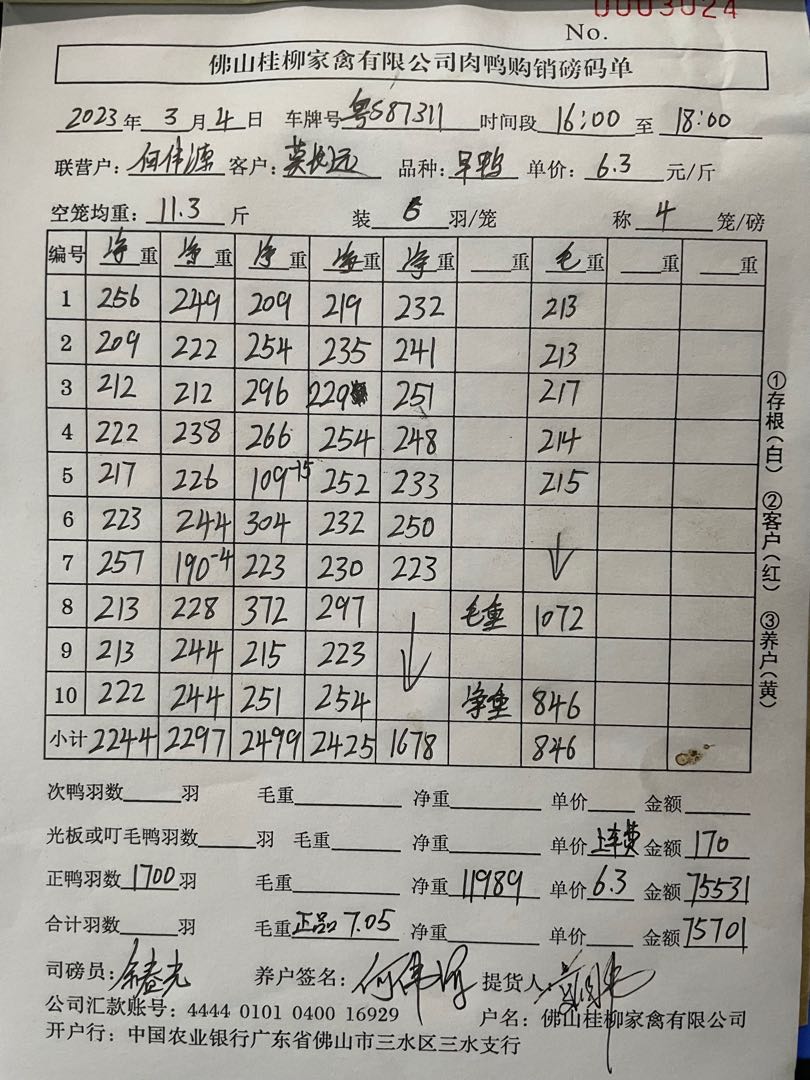 0003024
No.
佛山桂柳家禽有限公司肉鸭购销磅码单
2023年 3月4日 车牌号粤S87311 时间段 16:00 至 18:00
联营户：何伟源 客户：莫长远 品种：旱鸭 单价：6.3 元/斤
空笼均重：11.3 斤 装 6 羽/笼 称 4 笼/磅
编号 净重 净重 净重 净重 净重 重 毛重 重 重
1 256 249 209 219 232 213
2 209 222 254 235 241 213
3 212 212 296 229 251 217
4 222 238 266 254 248 214
5 217 226 109-15 252 233 215
6 223 244 304 232 250
7 257 190-4 223 230 223 ↓
8 213 228 372 297 毛重 1072
9 213 244 215 223 ↓
10 222 244 251 254 净重 846
小计 2244 2297 2499 2425 1678 846
次鸭羽数 羽 毛重 净重 单价 金额
光板或叮毛鸭羽数 羽 毛重 净重 单价 上车费 金额 170
正鸭羽数 1700 羽 毛重 净重 11989 单价 6.3 金额 75531
合计羽数 羽 毛重 正品 7.05 净重 单价 金额 75701
司磅员：余春光 养户签名：何伟 提货人：
公司汇款账号：4444 0101 0400 16929 户名：佛山桂柳家禽有限公司
开户行：中国农业银行广东省佛山市三水区三水支行
①存根（白） ②客户（红） ③养户（黄）